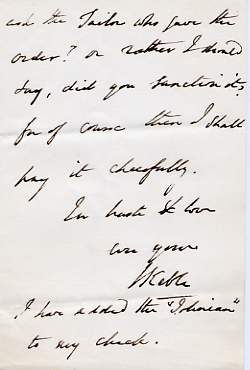 ask the Tailor who gave the
order? or rather I should
say, did you sanction it,
for of course then I shall
pay it cheerfully.
In haste & love
ever yours
JKeble
I have added the "
to my check.